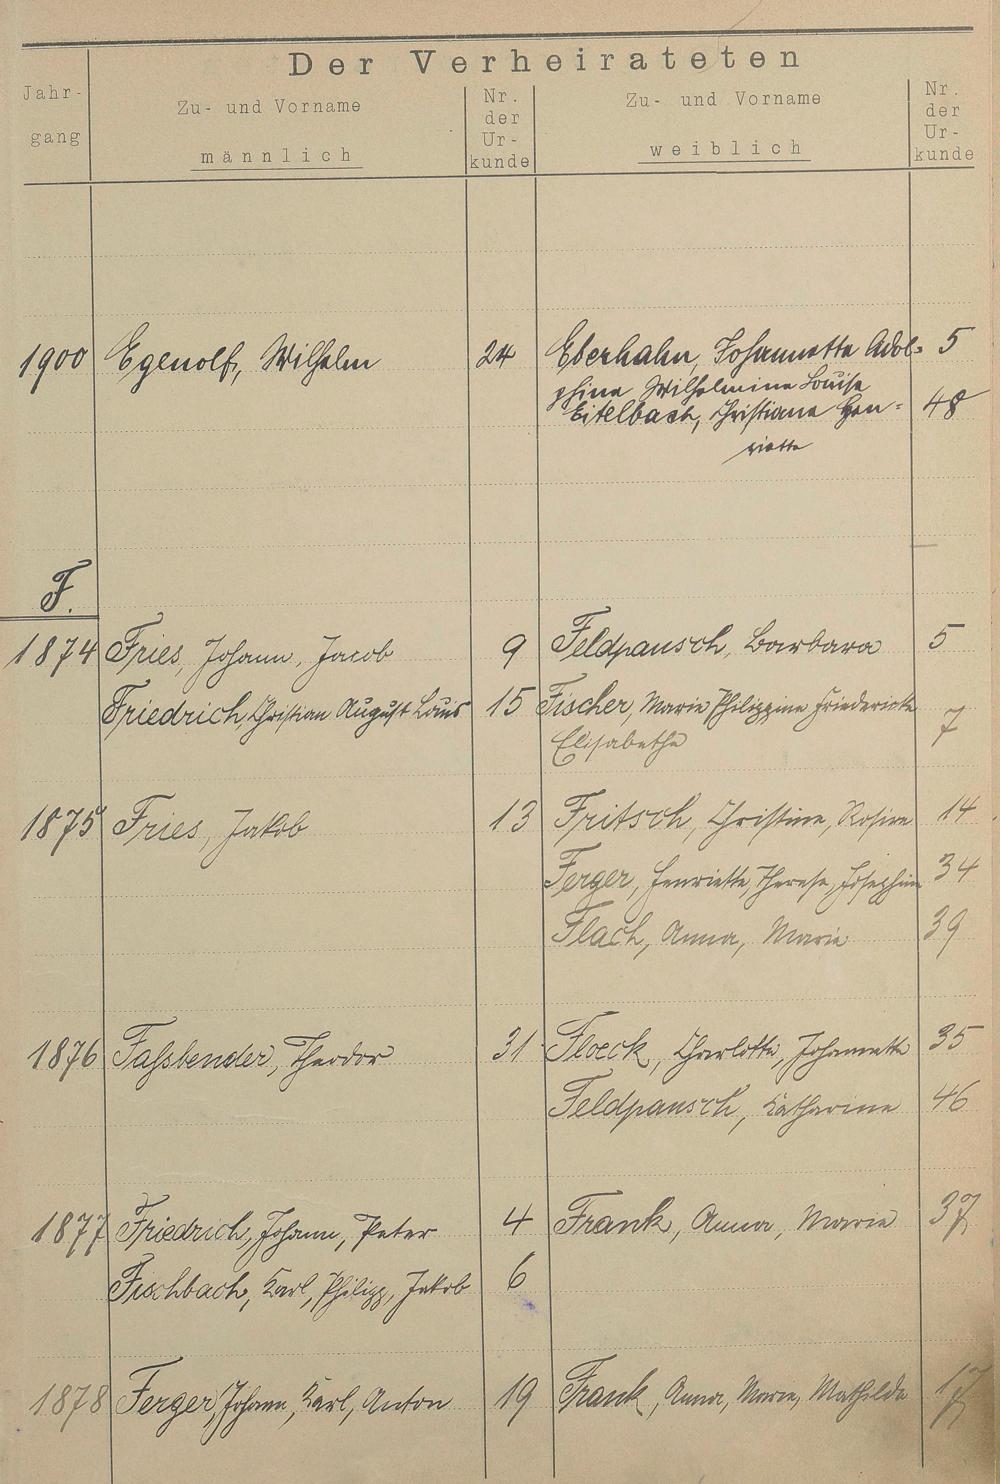 Der Verheirateten
Jahr-
gang
Zu- und Vorname
männlich
Nr.
der
Ur-
kunde
Zu- und Vorname
weiblich
Nr.
der
Ur-
kunde
1900 Egenolf, Wilhelm 24 Eberhahn, Johannette Adol- 5
phine Wilhelmine Louise
Eitelbach, Christiane Hen- 48
riette
F.
1874 Fries, Johann, Jacob 9 Feldpausch, Barbara 5
Friedrich, Christian August Louis 15 Fischer, Marie Philippine Friedericke
Elisabethe 7
1875 Fries, Jakob 13 Fritsch, Christine, Rosine 14
Ferger, Henriette, Therese, Josephine 34
Flach, Anna, Marie 39
1876 Faßbender, Theodor 31 Floeck, Charlotte, Johannette 35
Feldpausch, Katharine 46
1877 Friedrich, Johann, Peter 4 Frank, Anna, Marie 37
Fischbach, Karl, Philipp, Jakob 6
1878 Ferger, Johann, Karl, Anton 19 Frank, Anna, Marie, Mathilde 17